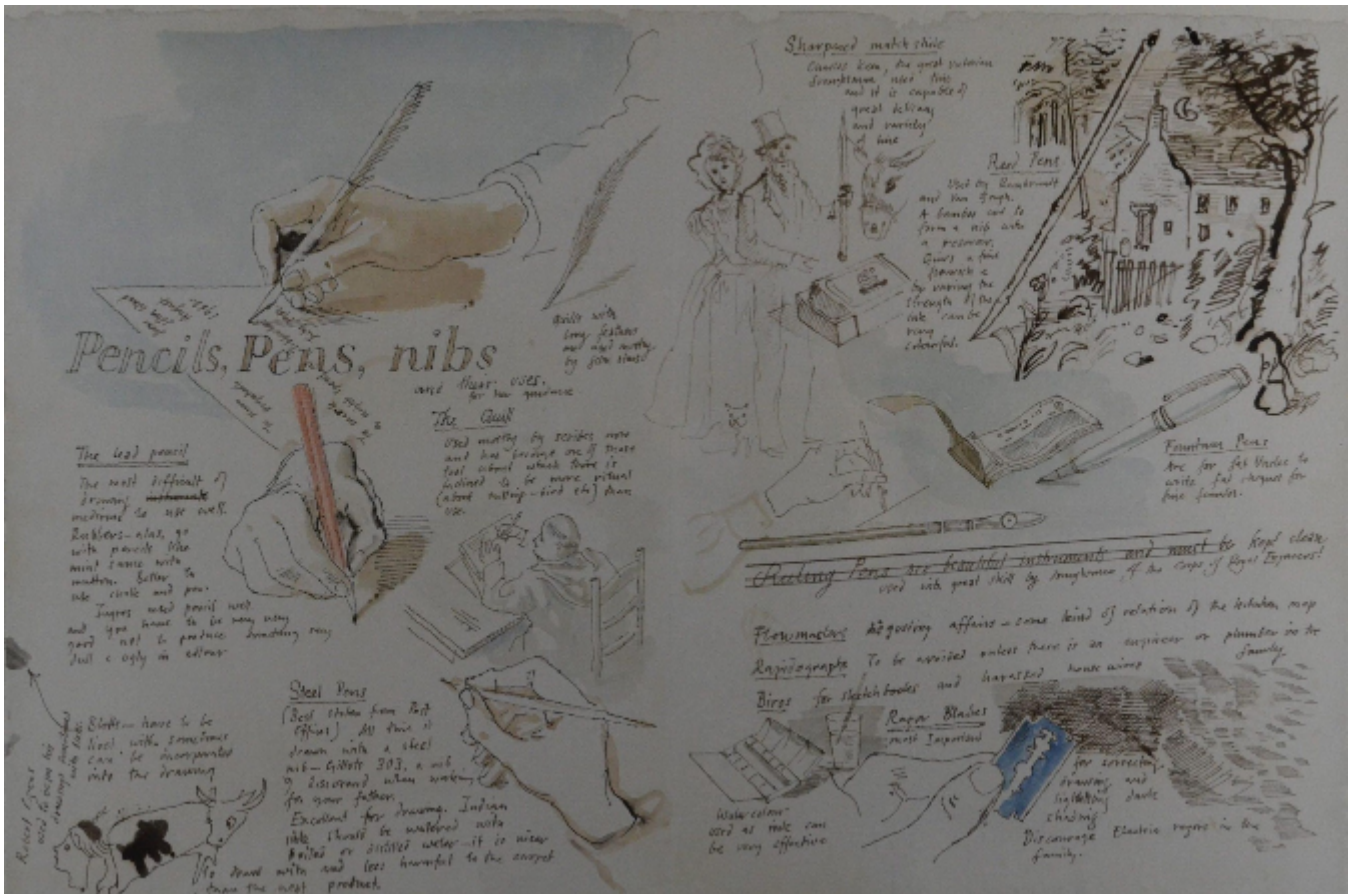 Pencils, Pens, nibs
and their uses.
for your guidance
Quills with
long feathers
are used mostly
by film stars!
The Lead pencil
The most difficult of
drawing
mediums to use well.
Rubbers – alas, go
with pencils like
mint sauce with
mutton. Better to
use chalk and pen.
Ingres used pencil well
and you have to be very very
good not to produce something very
dull & ugly in colour
The Quill
Used mostly by scribes now
and has become one of those
tool about which there is
inclined to be more ritual
(about nulrip – bird etc) than
use.
Steel Pens
(Best stolen from Post
Offices) All this is
drawn with a steel
nib – Gillott 303, a nib
I discovered when working
for your father.
Excellent for drawing. Indian
ink should be watered with
boiled or distilled water – it is nicer
to draw with and less harmful to the carpet
than the neat product.
Blots – have to be
lived with sometimes
can be incorporated
into the drawing
used to wipe his
drawings
with
Sharpened match stick
Charles Keen, the great victorian
draughtsman used this
and it is capable of
great delicacy
and variety
of line
Reed Pens
Used by Rembrandt
and Van Gogh.
A bamboo cut to
form a nib with
a reservoir.
Gives a fine
flourish &
by varying the
strength of the
ink can be
very
colourful.
Fountain Pens
Are for fat Uncles to
write fat cheques for
fine females.
Ruling Pens are beautiful instruments and must be kept clean
used with great skill by draughtsmen of the corps of Royal Engineers!
Flowmasters Disgusting affairs – some kind of relation of the
Rapidographs To be avoided unless there is an engineer or plumber in the
family.
Biros for sketchbooks and harassed housewives
Razor Blades
most Important
for correcting
drawing and
lightening dark
shading
Discourage Electric razors in the
family.
Water colour
used as ink can
be very effective